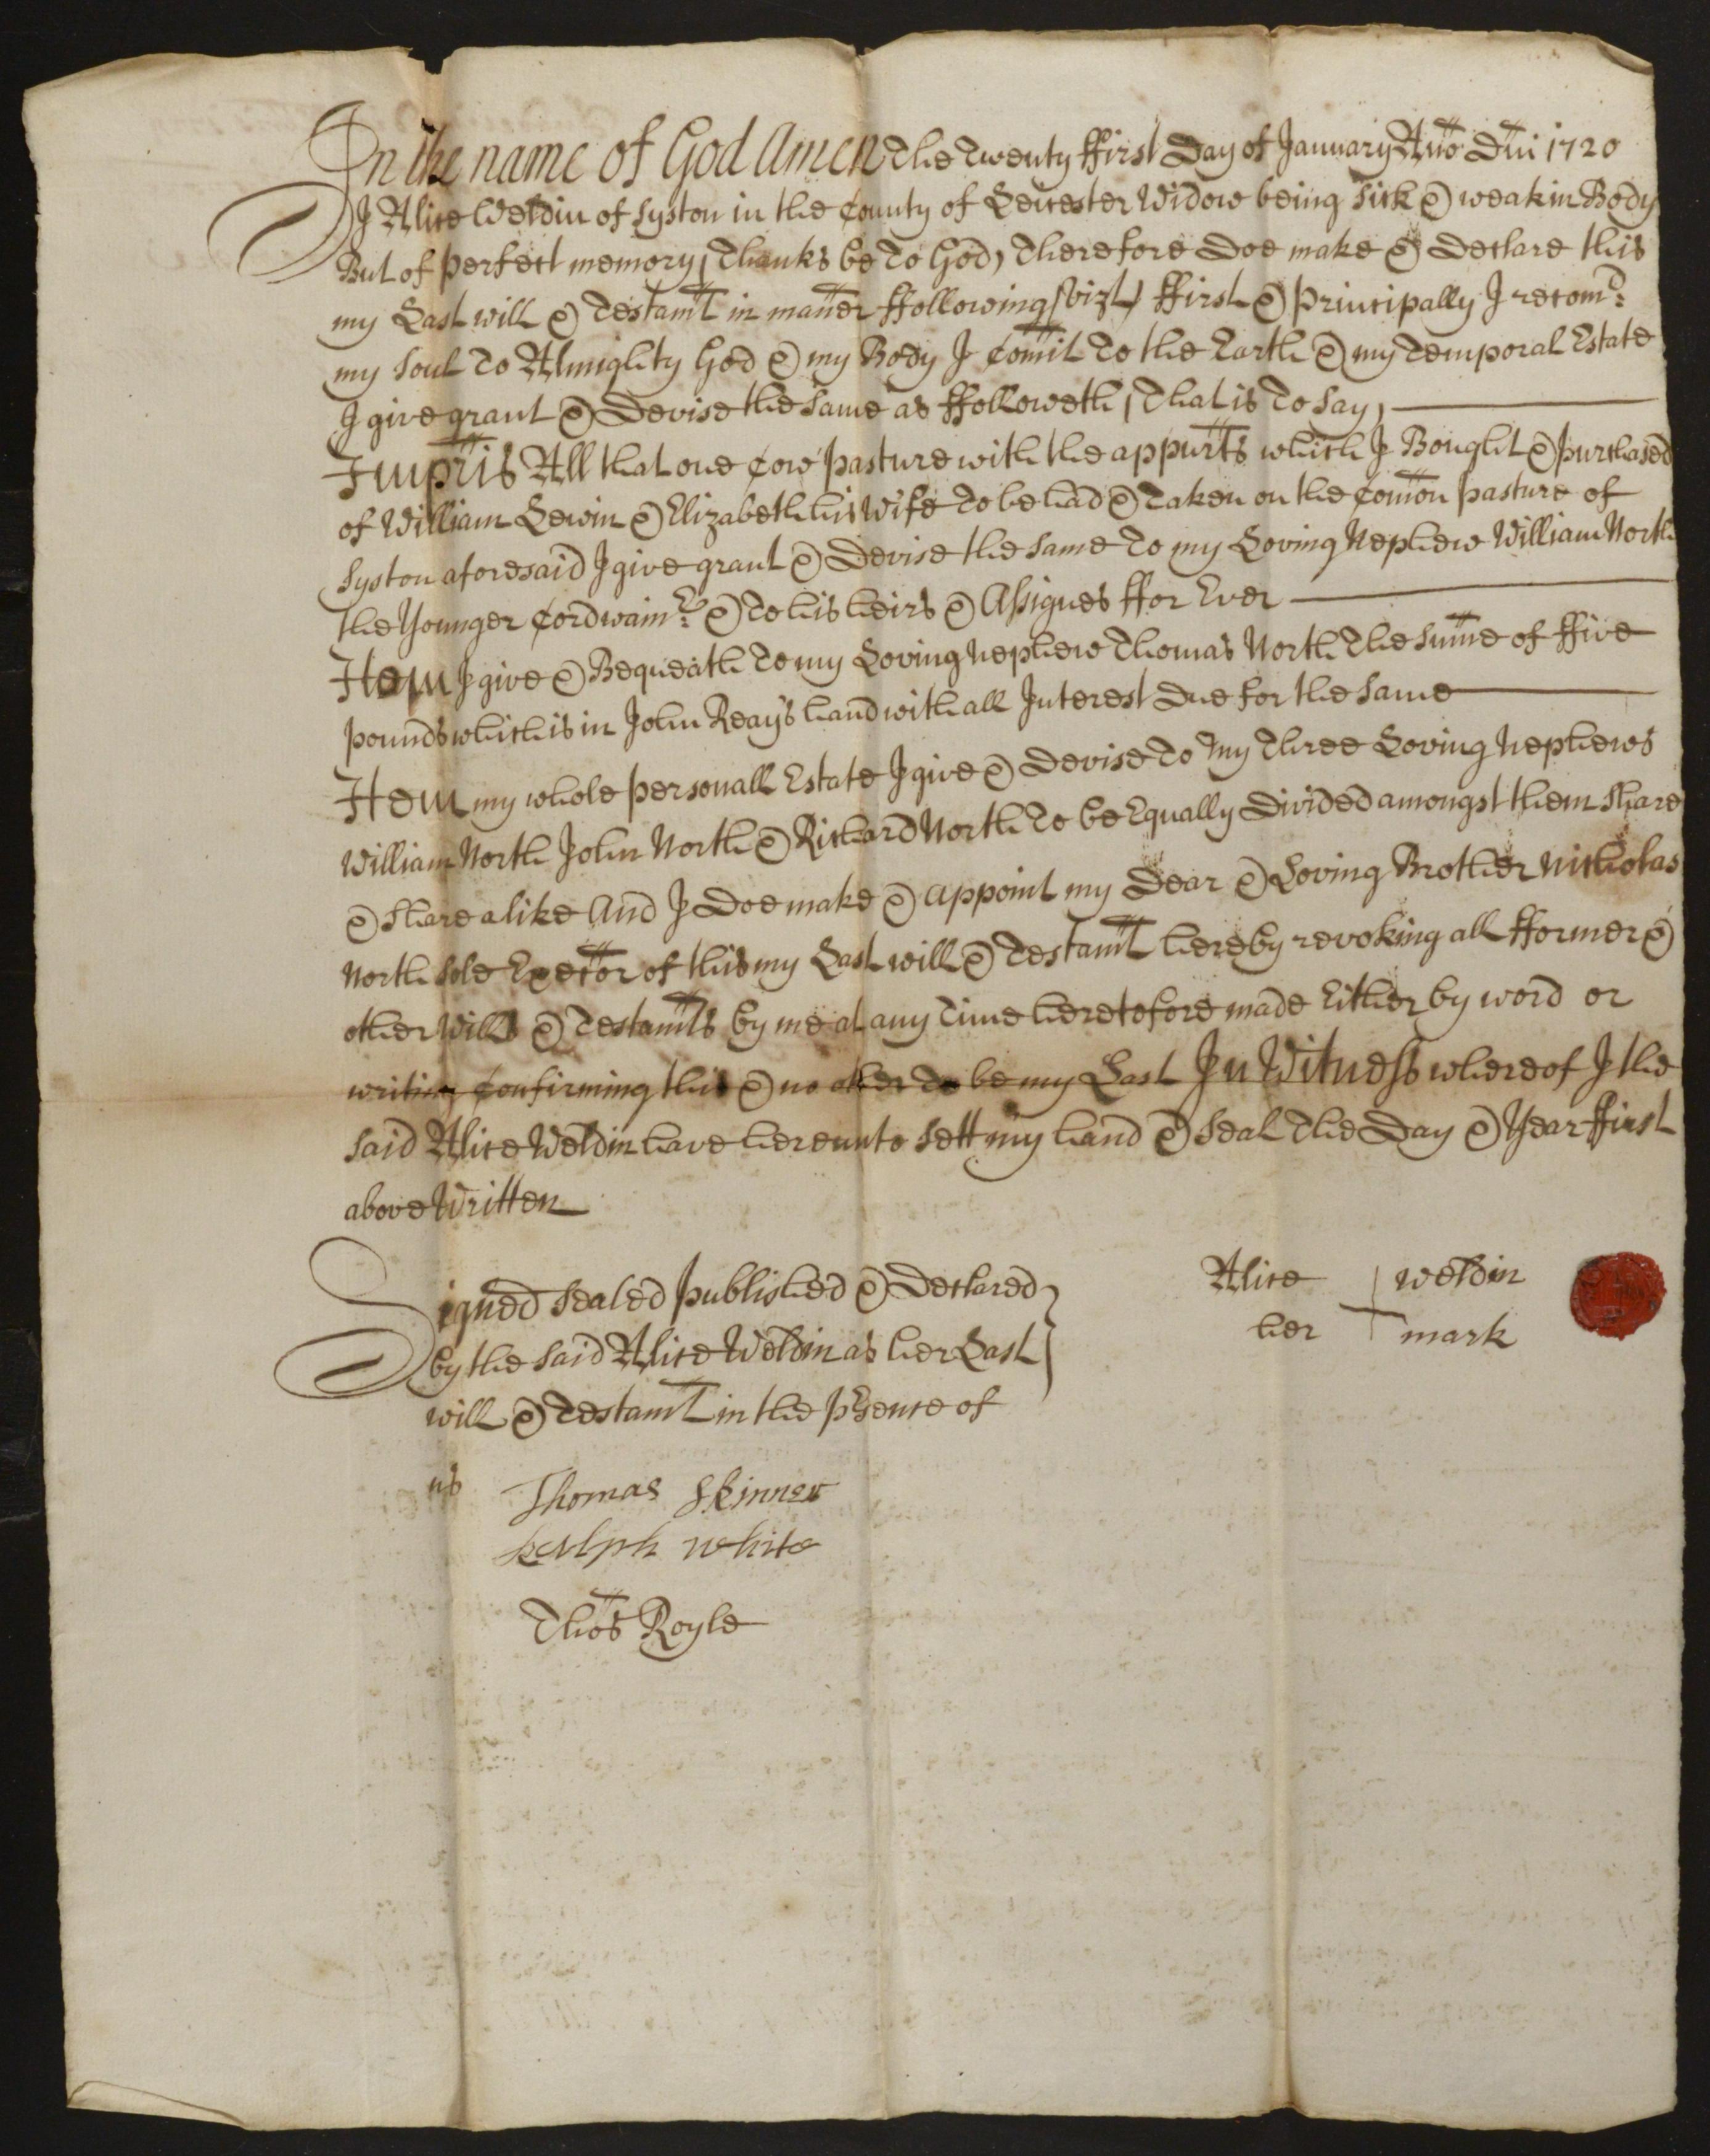 In the name of God Amen The Twenty ffirst Day of January Año Dñi 1720
I Alice Weldin of Syston in the County of Leicester Widow being sick & weak in Body
But of perfect memory (Thanks be To God) Therefore Doe make & Declare this
my Last will & Testamt in mañer ffollowing (vizt) ffirst & Principally I recomd:
my soul To Almighty God & my Body I Comit To the Earth & my Temporal Estate
I give grant & Devise the same as ffolloweth (That is To say)
Impris All that one Cow pasture with the appurts which I Bought & purchased
of William Lewin & Elizabeth his Wife To be had & Taken on the Comon pasture of
Syston aforesaid I give grant & Devise the same To my Loving Nephew William North
the Younger Cordwainr: & To his heirs & Assignes ffor Ever
Item I give & Bequeath To my Loving nephew Thomas North The sume of ffive
pounds which is in John Reay's hand with all Interest due for the same
Item my whole personall Estate I give & Devise To my Three Loving nephews
William North John North & Richard North To be Equally Divided amongst them share
& share alike And I Doe make & appoint my Dear & Loving Brother Nicholas
North sole Exector of this my Last will & Testamt hereby revoking all fformer &
other Wills & Testamts by me at any Time heretofore made Either by word or
writing Confirming this & no other To be my Last In Witness whereof I the
said Alice Weldin have hereunto sett my hand & seal The Day & Year ffirst
above Written
Signed sealed published & Declared
by the said Alice Weldin as her Last
will & Testamt in the psence of
us
Alice weldin
her mark
Thomas Skinner
Ralph white
Thos Royle